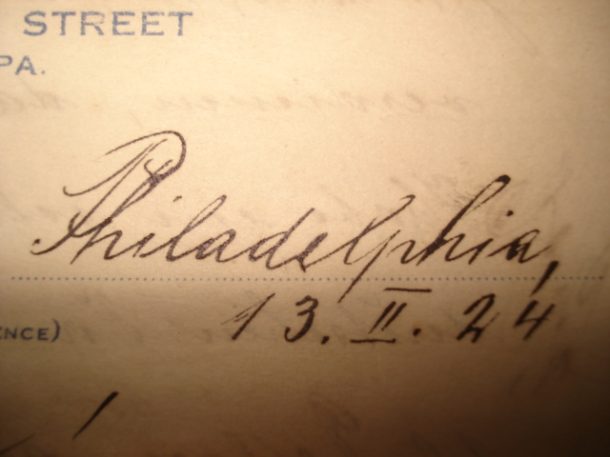 STREET
PA.
Philadelphia,
13. II. 24
ENCE)